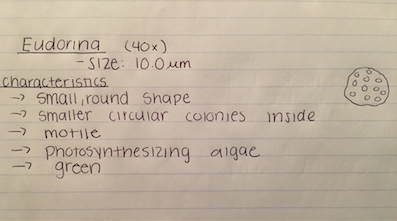 Eudorina (40x)
- SIZE: 10.0 um
characteristics
→ small, round shape
→ smaller circular colonies inside
→ motile
→ photosynthesizing algae
→ green